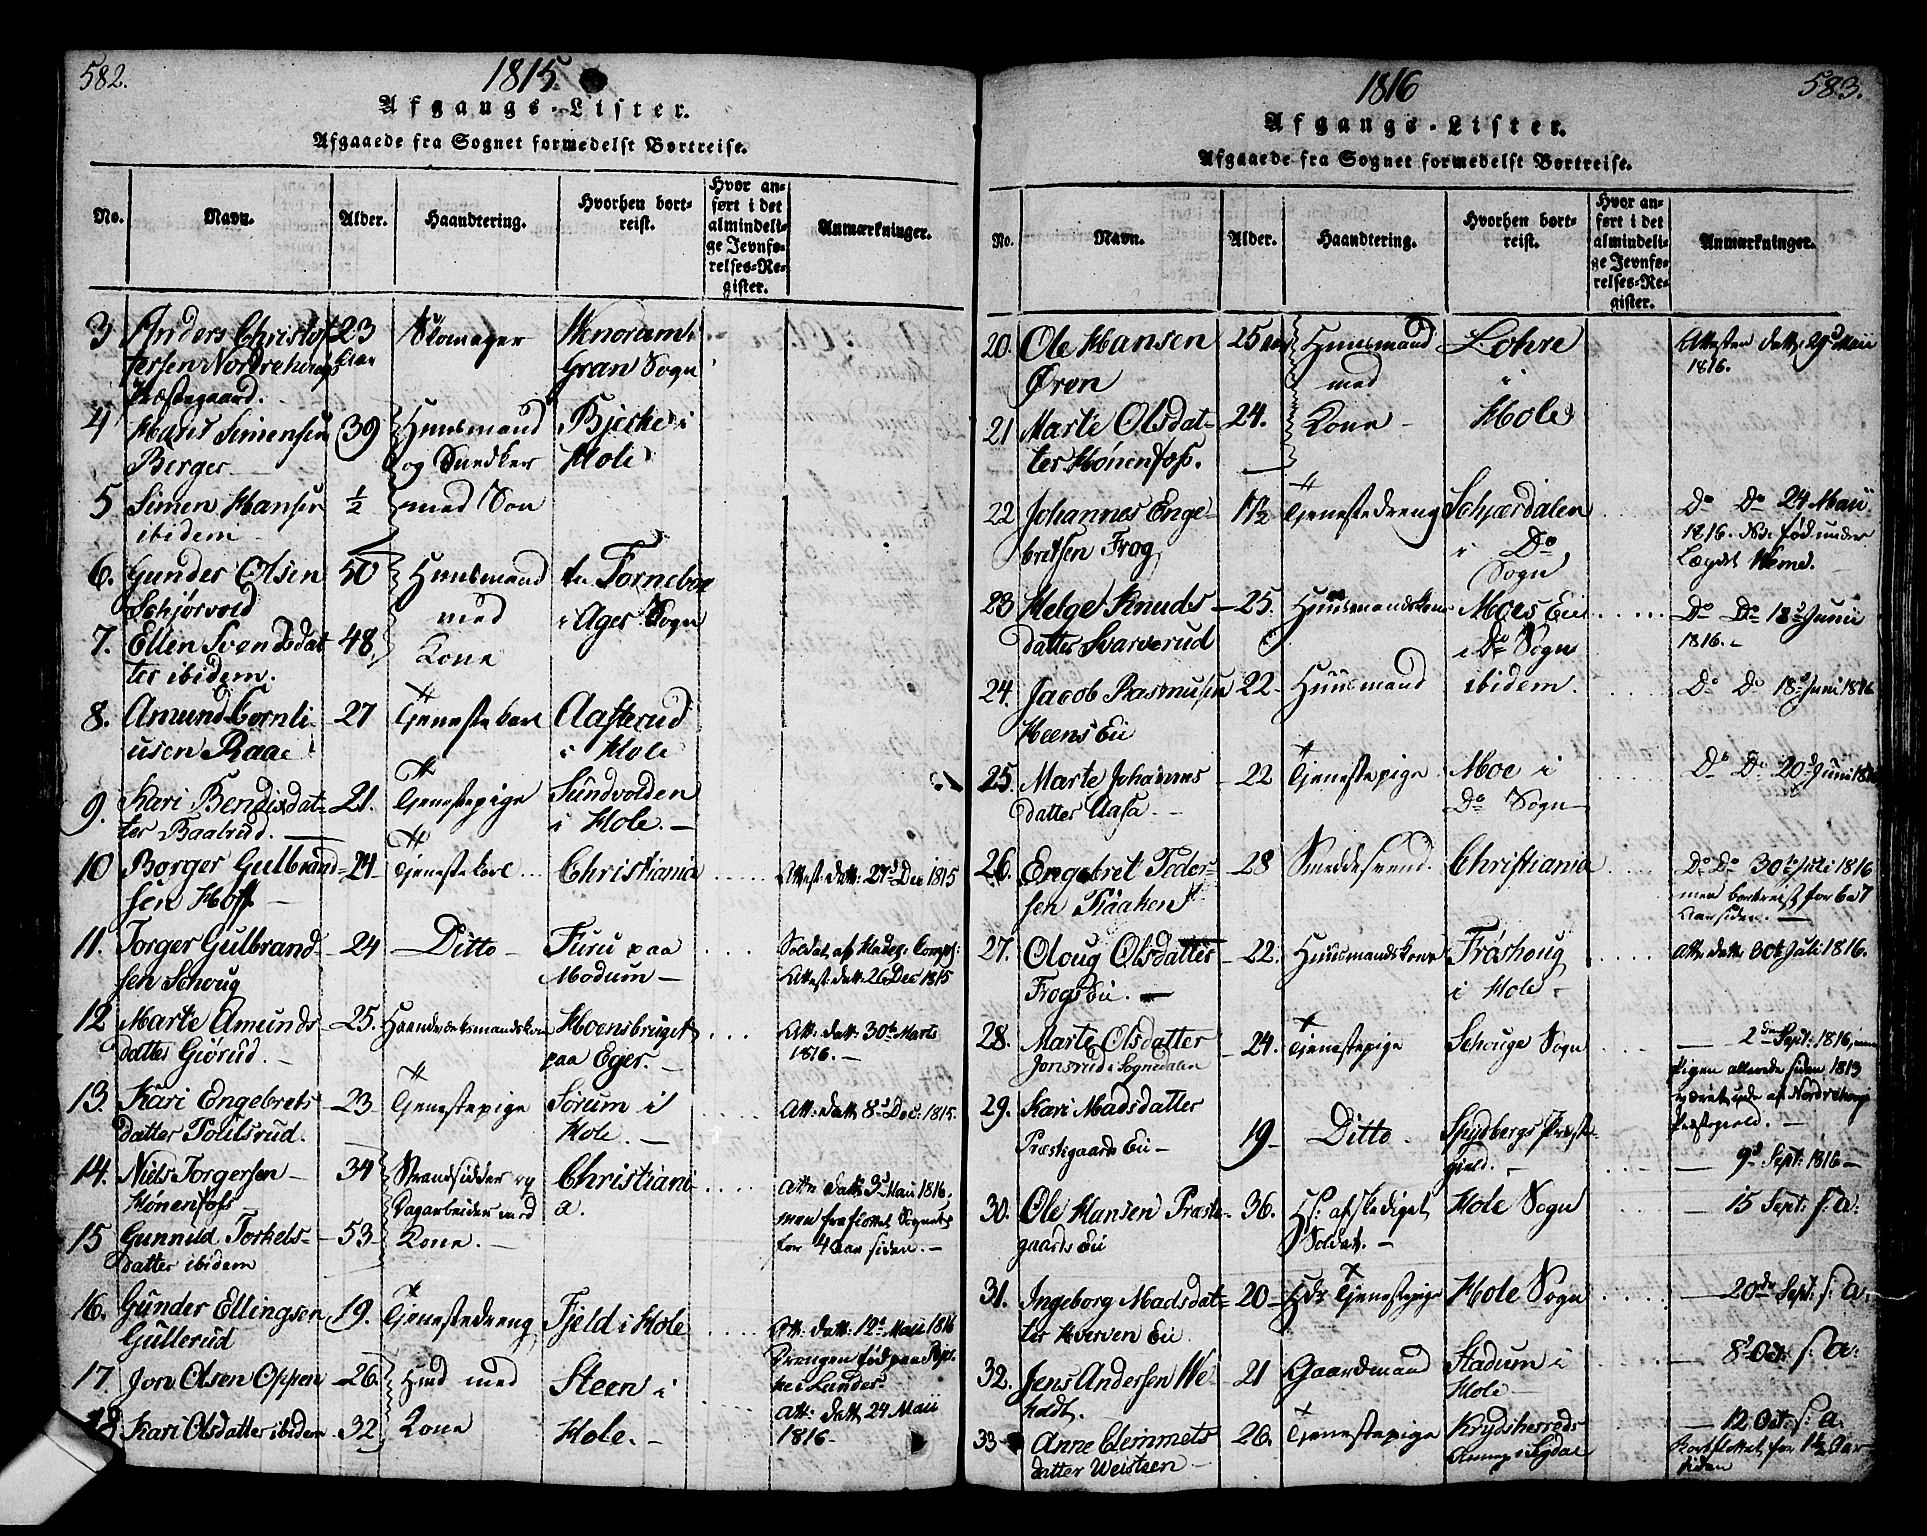 582.
1815
Afgangs-Lister.
Afgaaede fra Sognet formedelst Bortreise.
No. Navn. Alder. Haandtering. Hvorhen bortreist. Hvor anført i det almindelige Jevnførelses-Register. Anmærkninger.
3 Anders Christof 23
tersen Nordrehougs Aar
Præstegaard. Gran Sogn
4 Hans Simensen 39 Huusmand Bjerke i
Berger og Snedker Hole
5 Simen Hansen ½ med Søn
ibidem
6. Gunder Olsen 50 Huusmand
Schjørvold med i Ager Sogn
7. Ellen Svendsdat 48 Kone
ter ibidem.
8. Amund Corneli 27 Tjenestekarl Aasterud
usen Raae i Hole
9. Kari Bendixdat- 21. Tjenestepige Sundvolden
ter Baalrud. i Hole.
10 Borger Gulbrand- 24 Tjenestekarl Christiania Attest datt: 21 Dec 1815
sen Hoff
11. Torger Gulbrand 24 Ditto Furu paa Soldat af
sen Schoug Modum Attest: datt: 26 Dec 1815
12 Marte Amunds 25. Haandværksmandskone Att: datt: 30te Marts
datter Giørud. paa Eger. 1816.
13. Kari Engebrets 23 Tjenestepige Sørum i Att: datt: 8 Dec: 1815.
datter Tolilsrud. Hole.
14. Niels Torgersen 34 Strandsidder og Christiani Att: datt: 3 Maii 1816.
Hönenfoss Dagarbeider med a. men fraflottet Sognet
15 Gunnild Torkels- 53 Kone. for 4 Aar siden.
datter ibidem
16. Gunder Ellingsen 19. Tjenestedreng Fjeld i Hole Att: datt: 12 Maii 1816
Gullerud Drengen født paa
17. Jon Olsen Oppen 26. med Steen i
18 Kari Olsdatter ibidem 32 Kone Hole. Att: datt 24 Maii
1816
1816
583.
Afgangs-Lister.
Afgaaede fra Sognet formedelst Bortreise.
No. Navn. Alder. Haandtering. Hvorhen bortreist. Hvor anført i det almindelige Jevnførelses-Register. Anmærkninger.
20. Ole Hansen 25 Aar Huusmand Lohre Attesten datt: 29 Maii
Øron med i 1816.
21 Marte Olsdat- 24. Kone Hole
ter Hönenfoss.
22 Johannes Enge- 17½ Tjenestedreng Schjærdalen Do Do 24 Maii
bretsen Frog i Do 1816. NB: fød under
Sogn Lægdet Heme.
23 Helge Knuds 25. Huusmandskone Moes Eie Do Do 18 Junii
datter Svarverud i Do Sogn 1816.
24. Jacob Rasmusen 22 Huusmand ibidem. Do Do 18 Juni 1816
Heens Eie
25. Marte Johannes 22 Tjenestepige Moe i Do Do 20 Juni 1816
datter Aasa. Do Sogn
26. Engebret Peder- 28 Smedesvend. Christiania Do Do 30te Juli 1816
sen men bortreist for 6 a 7
Aar siden.
27. Oloug Olsdatter 22. Huusmandskone Frøshoug Att: datt: 30te Juli 1816.
Frogs Eie. i Hole
28. Marte Olsdatter 24. Tjenestepige Schouge Sogn 2den Sept: 1816, men
Jonsrud i Sognedalen Pigen allerede siden 1813
29. Kari Madsdatter været ude af Nordrehougs
Præstegaards Eie 19 Ditto. Spydbergs Præste Præstegield.
gield. 9 Sept: 1816
30. Ole Hansen Præste 36. afskediget Hole Sogn 15 Sept: s: a:
gaards Eie Soldat.
31. Ingeborg Madsdat- 20 Tjenestepige Hole Sogn 20de Sept: s: a:
ter Hverven Eie
32. Jens Andersen We- 21 Gaardmand Stadum i 8 Oct: s: a:
holdt. Hole
33 Anne Clemmets 26. Tjenestepige Krydsherreds 12 Oct: s: a.
datter Weisteen Annex i Sigdal Bortflottet for 1½ Aar
siden